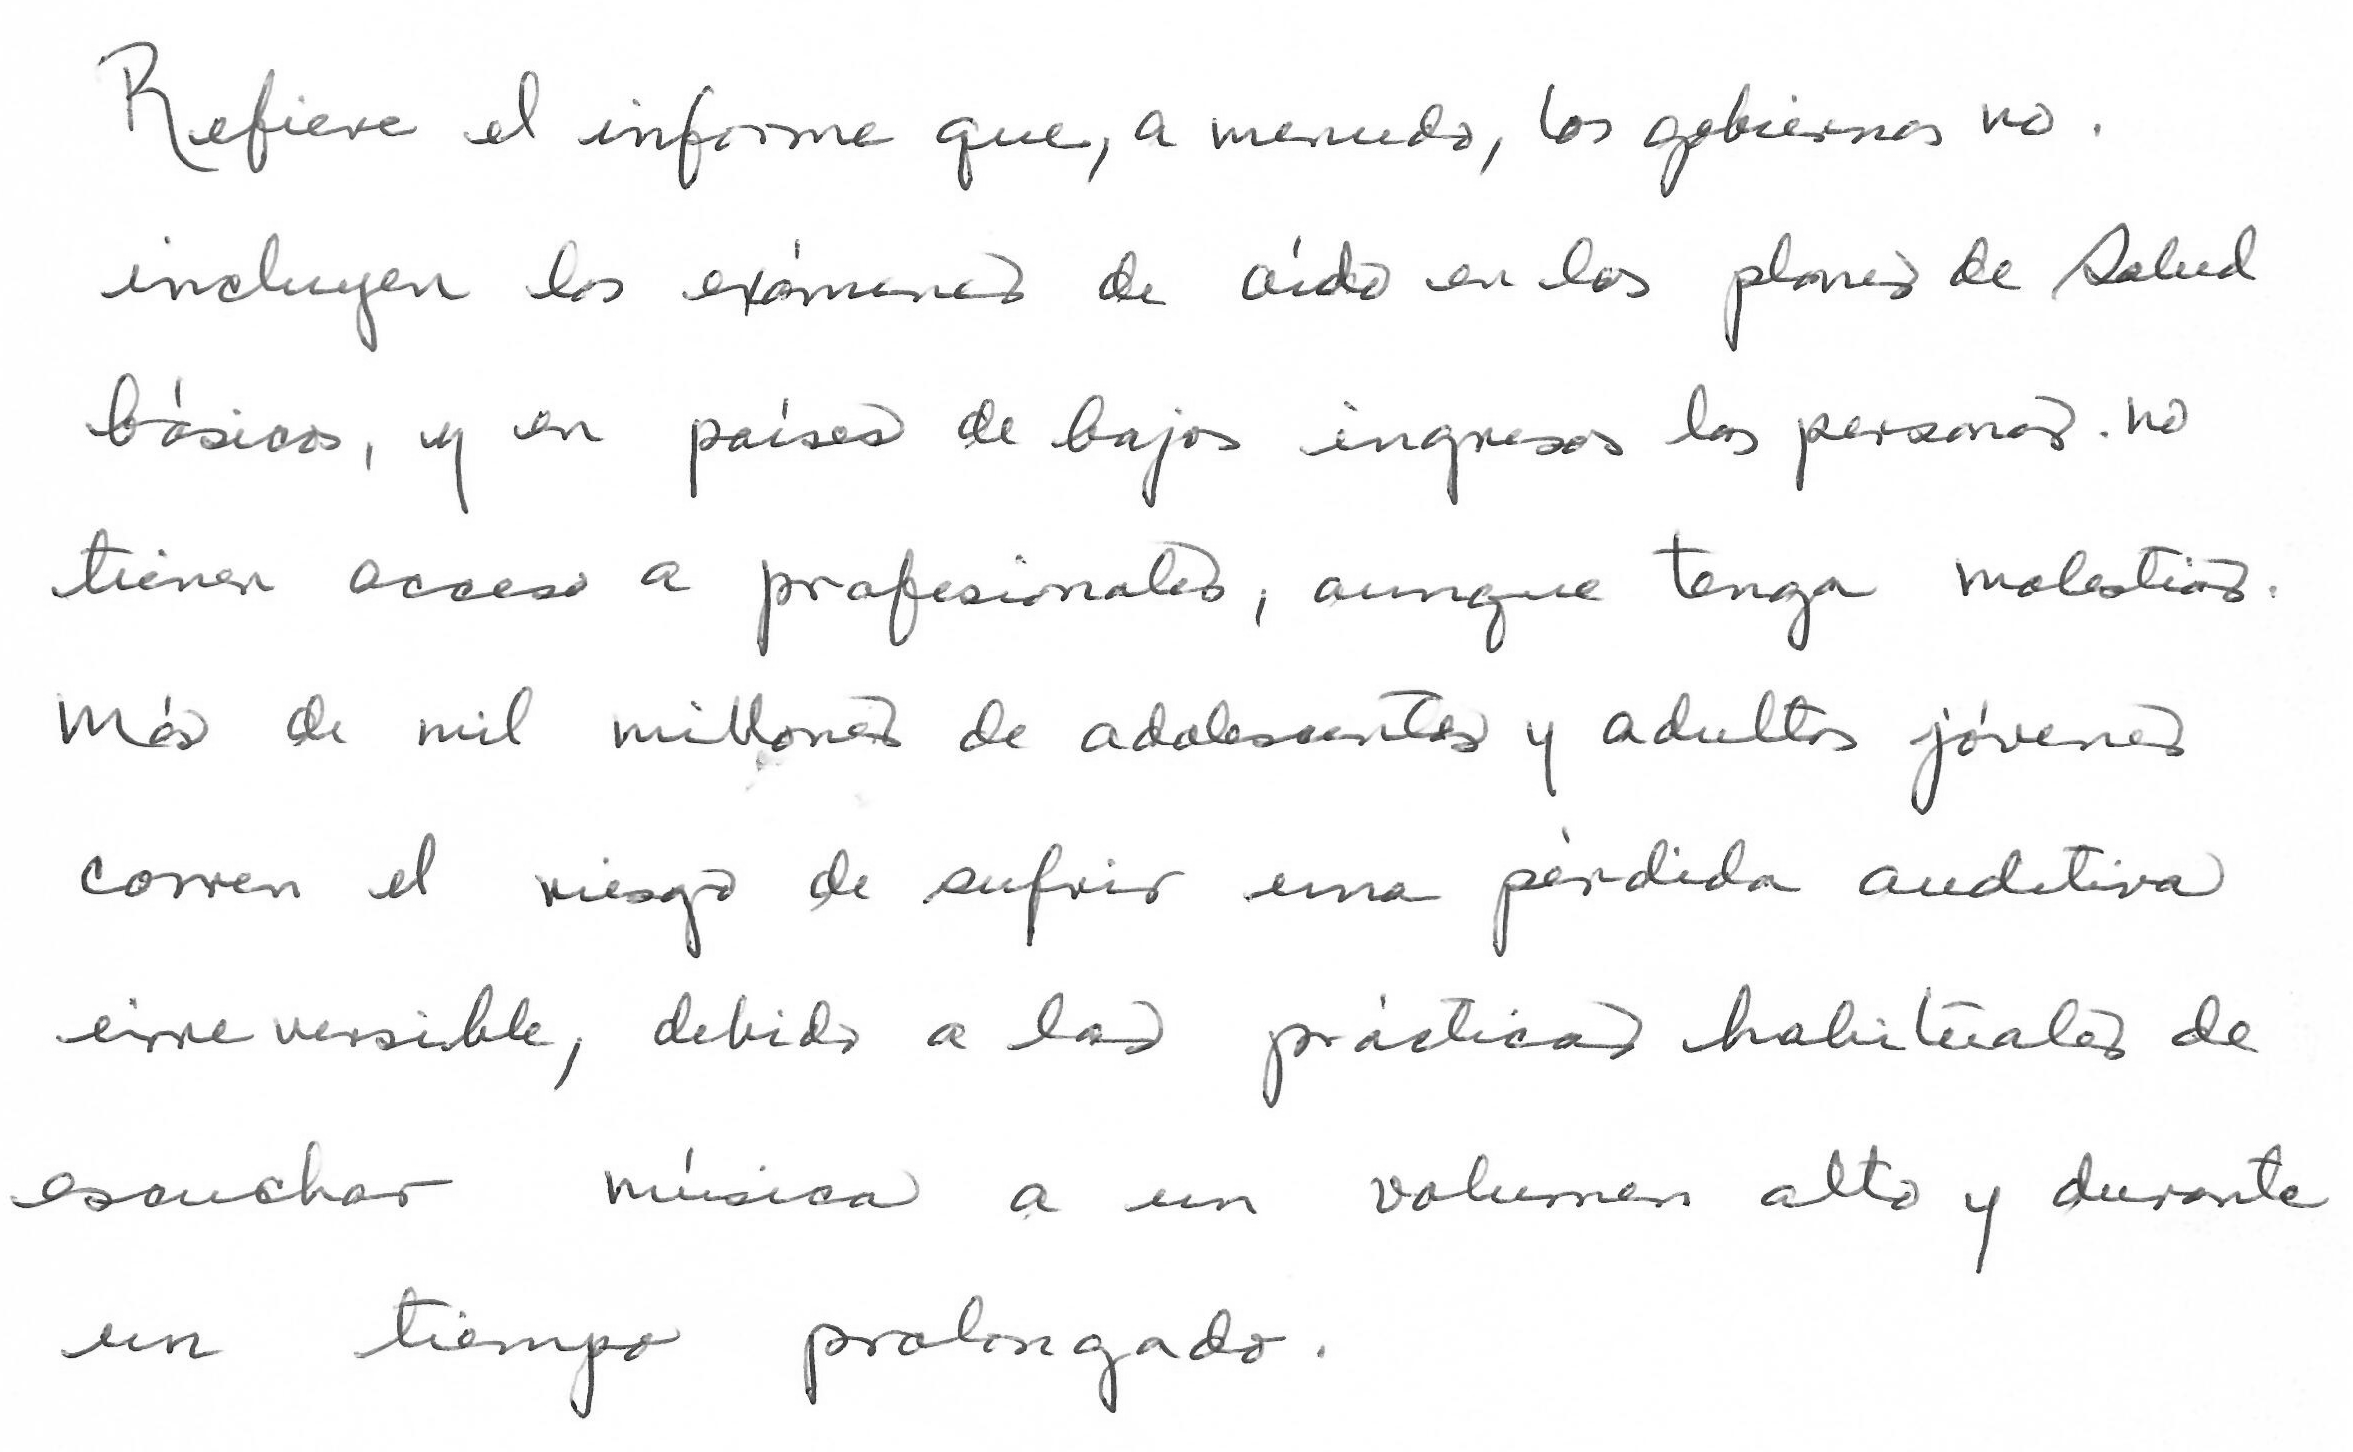 Refiere el informe que, a menudo, los gobiernos no.
incluyen los exámenes de oído en los planes de Salud
básicos, y en países de bajos ingresos las personas. no
tienen acceso a profesionales, aunque tenga molestias.
Más de mil millones de adolescentes y adultos jóvenes
corren el riesgo de sufrir una pérdida auditiva
irreversible, debido a las prácticas habituales de
escuchar música a un volumen alto y durante
un tiempo prolongado.